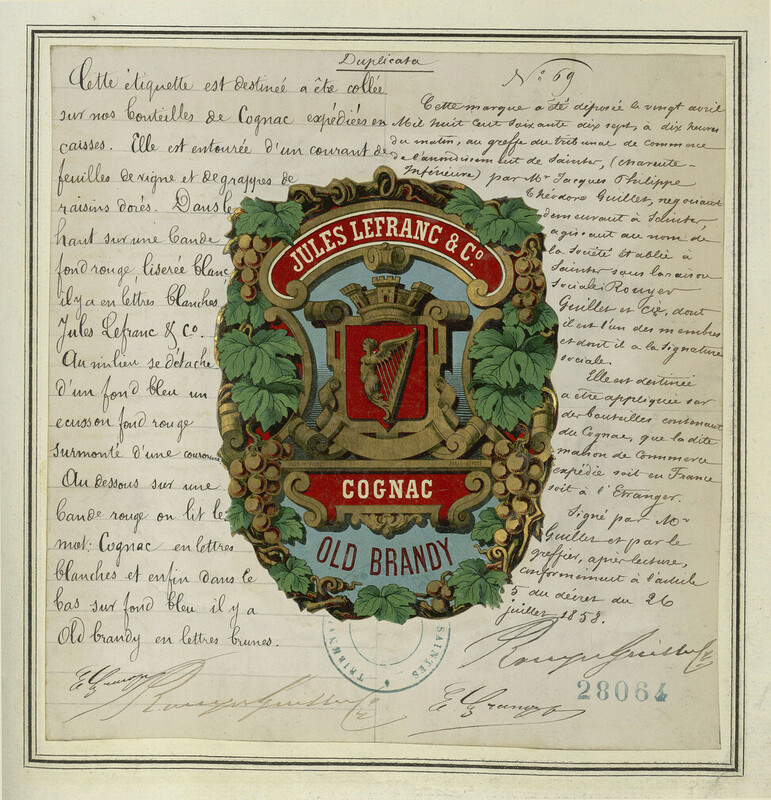 Duplicata
Cette étiquette est destinée a être collée
sur nos bouteilles de Cognac expédiées en
caisses. Elle est entourée d'un courant de
feuilles de vigne et de grappes de
raisins dorés. Dans le
haut sur une bande
fond rouge liserée blanc
il y a en lettres blanches
Jules Lefranc & Co.
Au milieu se détache
d'un fond bleu un
ecusson fond rouge
surmonté d'une couronne
Au dessous sur une
bande rouge on lit le
mot: Cognac en lettres
blanches et enfin dans le
bas sur fond bleu il y a
Old brandy en lettres brunes.
No 69
Cette marque a été déposée le vingt avril
Mil huit cent soixante dix sept, à dix heures
du matin, au greffe du tribunal de Commerce
de l'arrondissement de Saintes, (Charente-
Inférieure) par Mr Jacques Philippe
Théodore Guillet, négociant
demeurant à Saintes
agissant au nom de
la Société établie à
Saintes sous la raison
sociale Rouyer
Guillet et Cie, dont
il est l'un des membres
et dont il a la signature
sociale.
Elle est destinée
a être appliquée sur
des bouteilles contenant
du Cognac, que la dite
maison de Commerce
expédie soit en France
soit à l'Etranger.
Signé par Mr
Guillet et par le
greffier, après lecture,
conformément à l'article
5 du décret du 26
juillet 1858.
JULES LEFRANC & Co.
COGNAC
OLD BRANDY
TRIBUN
SAINTES
Rouyer Guillet & Cie
Rouyer Guillet & Cie
28064